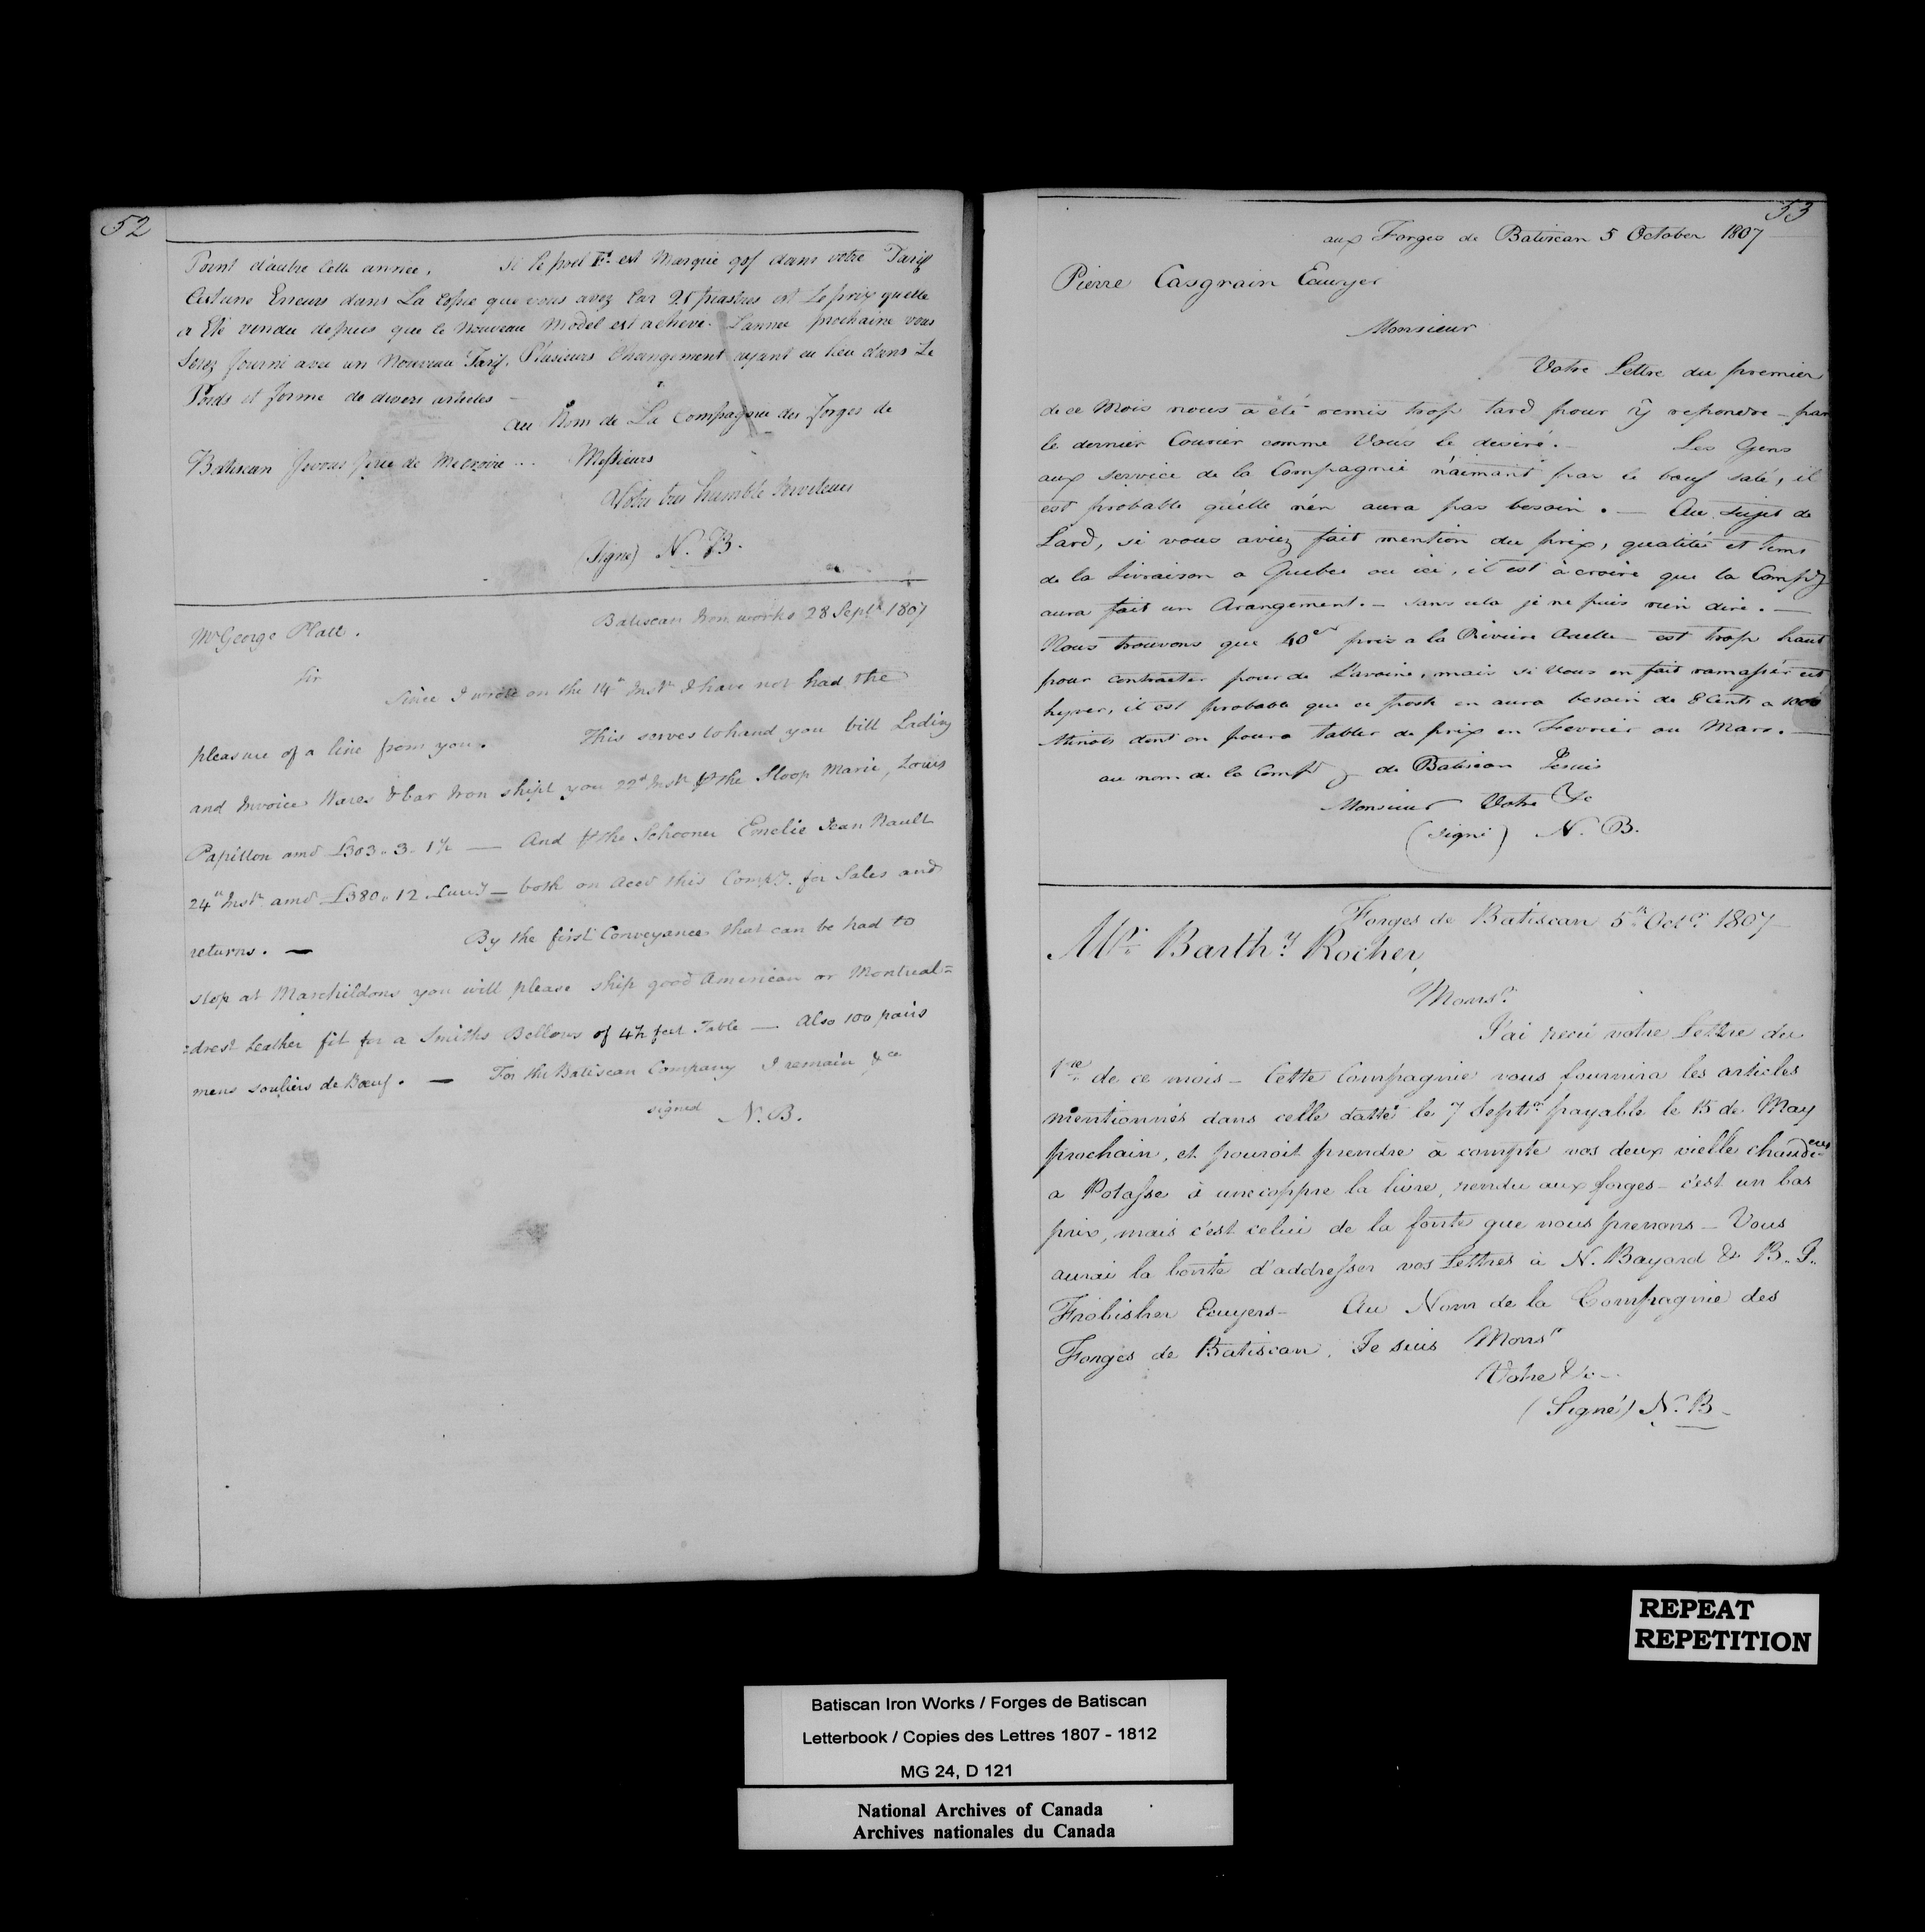 52
Point d'autre cette année. Si le poel Ft est Marqué 90/ dans votre Tarif
C'est une Erreur dans La Copie que vous avez Car 25 piastres est Le prix quelle
a Eté vendu depuis que le Nouveau Model est achevé. L'année prochaine vous
Serez fourni avec un Nouveau Tarif. Plusieurs Changement ayant eu lieu dans Le
Poids et forme de divers articles
au Nom de La Compagnie des forges de
Batiscan Je vous prie de Me croire ... Messieurs
Votre tres humble Serviteur
(Signé) N. B.
Batiscan Iron works 28 Septr 1807
Mr George Platt.
Sir
Since I wrote on the 14th Inst I have not had the
pleasure of a line from you. This serves to hand you bill Lading
and Invoice Wares & bar Iron shipt you 22d Inst ⅌ the Sloop Marie, Louis
Papillon amd £303.. 3.. 1½ — And ⅌ the Schooner Emelie Jean Nault
24th Inst amd £380.. 12 Curcy — both on Acct this Compy. for Sales and
returns. — By the first Conveyance that can be had to
stop at Marchildons you will please ship good American or Montreal=
=drest Leather fit for a Smiths Bellows of 4½ feet Table — Also 100 pairs
mens souliers de Bœuf. — For the Batiscan Company I remain &ca
signed N. B.
53
aux Forges de Batiscan 5 October 1807
Pierre Casgrain Ecuyer
Monsieur
Votre Lettre du premier
de ce Mois nous a été remis trop tard pour ÿ repondre – par
le dernier Courier comme Vous le desiré. – Les Gens
aux service de la Compagnie n'aimant pas le bœuf salé, il
est probable qu'elle n'en aura pas besoin. — Au Sujet de
Lard, si vous aviez fait mention du prix, qualité et tems
de la Livraison a Quebec ou ici, il est à croire que la Compy
aura fait un Arangement. – sans cela je ne puis rien dire. —
Nous trouvons que 40 pris a la Rivière Ouelle – est trop haut
pour contracter pour de L'avoine, mais si Vous en fait ramassér cet
hyver, il est probable que ce poste en aura besoin de 8 Cents a 1000
Minots dont on poura tabler de prix en Fevrier ou Mars. —
au nom de la Compy de Batiscan Je suis
Monsieur Votre &c
(signé) N. B.
Forges de Batiscan 5th Octr 1807
Mr Barthy Rocher,
Monsr
J'ai recu votre Lettre du
1re de ce mois – Cette Compagnie vous fournira les articles
mentionnés dans celle datté le 7 Septr payable le 15 de May
prochain, et pouroit prendre à compte vos deux vielle chaudieres
a Potasse à une coppre la livre, rendu aux forges – c'est un bas
prix, mais c'est celui de la fonte que nous prenons – Vous
aurai la bonté d'addresser vos Lettres à N. Bayard & B.. J..
Frobisher Ecuyers – Au Nom de la Compagnie des
Forges de Batiscan, Je suis Monsr
Votre &c –
(Signé) N. B –
REPEAT
REPETITION
Batiscan Iron Works / Forges de Batiscan
Letterbook / Copies des Lettres 1807 - 1812
MG 24, D 121
National Archives of Canada
Archives nationales du Canada